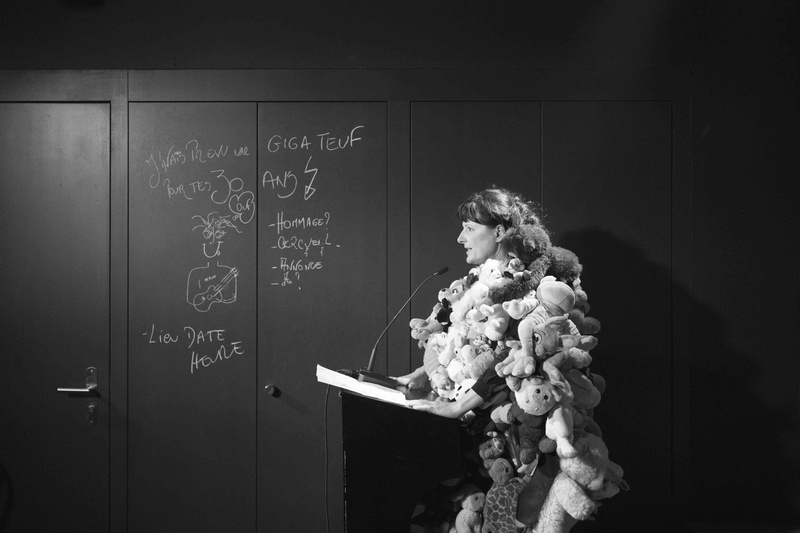 J'AVAIS PREVU UNE
POUR TES 30
GIGA TEUF
ANS
-HOMMAGE?
-CERCUEIL-
-ANNONCE
- ?
-LIEU DATE
HEURE